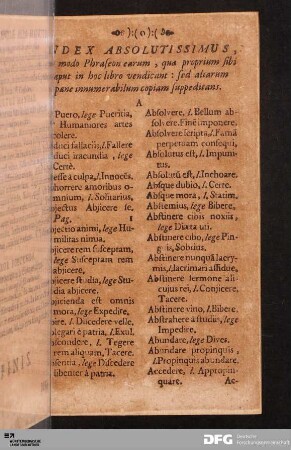 NDEX ABSOLUTISSIMUS,
modo Phraseon earum, quæ proprium sibi
caput in hoc libro vendicant: sed aliarum
pane innumerabilium copiam suppeditans.
A
Puero, lege Pueritia,
Humaniores artes
colere.
duci fallaciis, l. Fallere
duci iracundia, lege
Certè.
esse à culpa, l. Innocēs.
horrere amoribus o-
omnium, l. Solitarius,
jectus Abjicere se,
Pag. 1
jectio animi, lege Hu-
militas nimia.
bjicere rem susceptam,
lege Susceptam rem
abjicere.
bjicere studia, lege Stu-
dia abjicere.
bjicienda est omnis
mora, lege Expedire.
bire, l. Discedere velle.
blegari è patria, l. Exul.
bscondere, l. Tegere
rem aliquam, Tacere.
bsentia, lege Discedere
libenter à patria.
Absolvere, l. Bellum ab-
solvere. Finē imponere.
Absolvere scripta, l. Famā
perpetuam consequi,
Absolutus est, l. Impuni-
tus.
Absolutū est, l. Inchoare.
Absque dubio, l. Certe.
Absque mora, l. Statim.
Abstemius, lege Bibere.
Abstinere cibis noxiis,
lege Diæta uti.
Abstinere cibo, lege Pin-
guis, Sobrius.
Abstinere nunquā lacry-
mis, l. lacrimari assidue,
Abstinere sermone ali-
cujus rei, l. Conjicere,
Tacere.
Abstinere vino, l. Bibere.
Abstrahere à studiis, lege
Impedire.
Abundare, lege Dives.
Abundare propinquis,
l. Propinquis abundare.
Accedere, l. Appropin-
quare.
Ac-
DFG